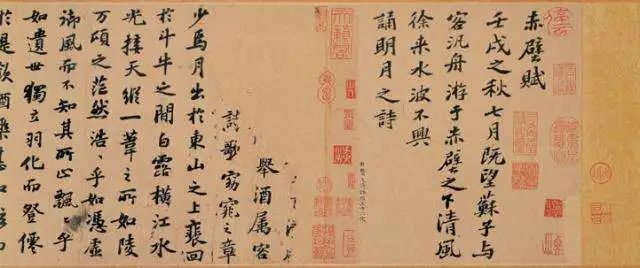 赤壁賦
壬戌之秋七月既望蘇子与
客汎舟游于赤壁之下清風
徐来水波不興
誦明月之詩
舉酒属客
歌窈窕之章
少焉月出於東山之上裵回
於斗牛之間白露橫江水
光接天縱一葦之所如陵
万頃之茫然浩〻乎如憑虛
御風而不知其所止飄〻乎
如遺世獨立羽化而登僊
於是飲酒樂甚